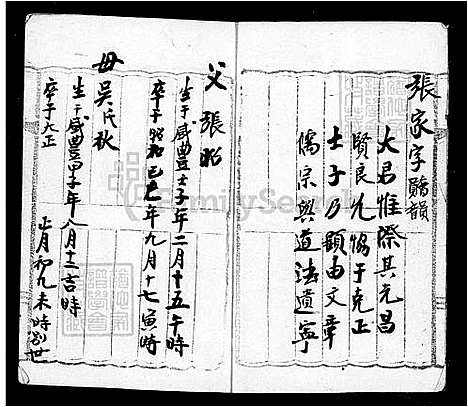 張家字韻
大君惟際其元昌
賢良允協于克正
士子乃顯由文章
儒宗與道法遺寧
父 張
生于咸豐壬子年二月十五午時
卒于昭和己巳年九月十七寅時
母 吳氏秋
生于咸豐甲子年八月十二吉時
卒于大正 正月初九未時別世
FamilySearch